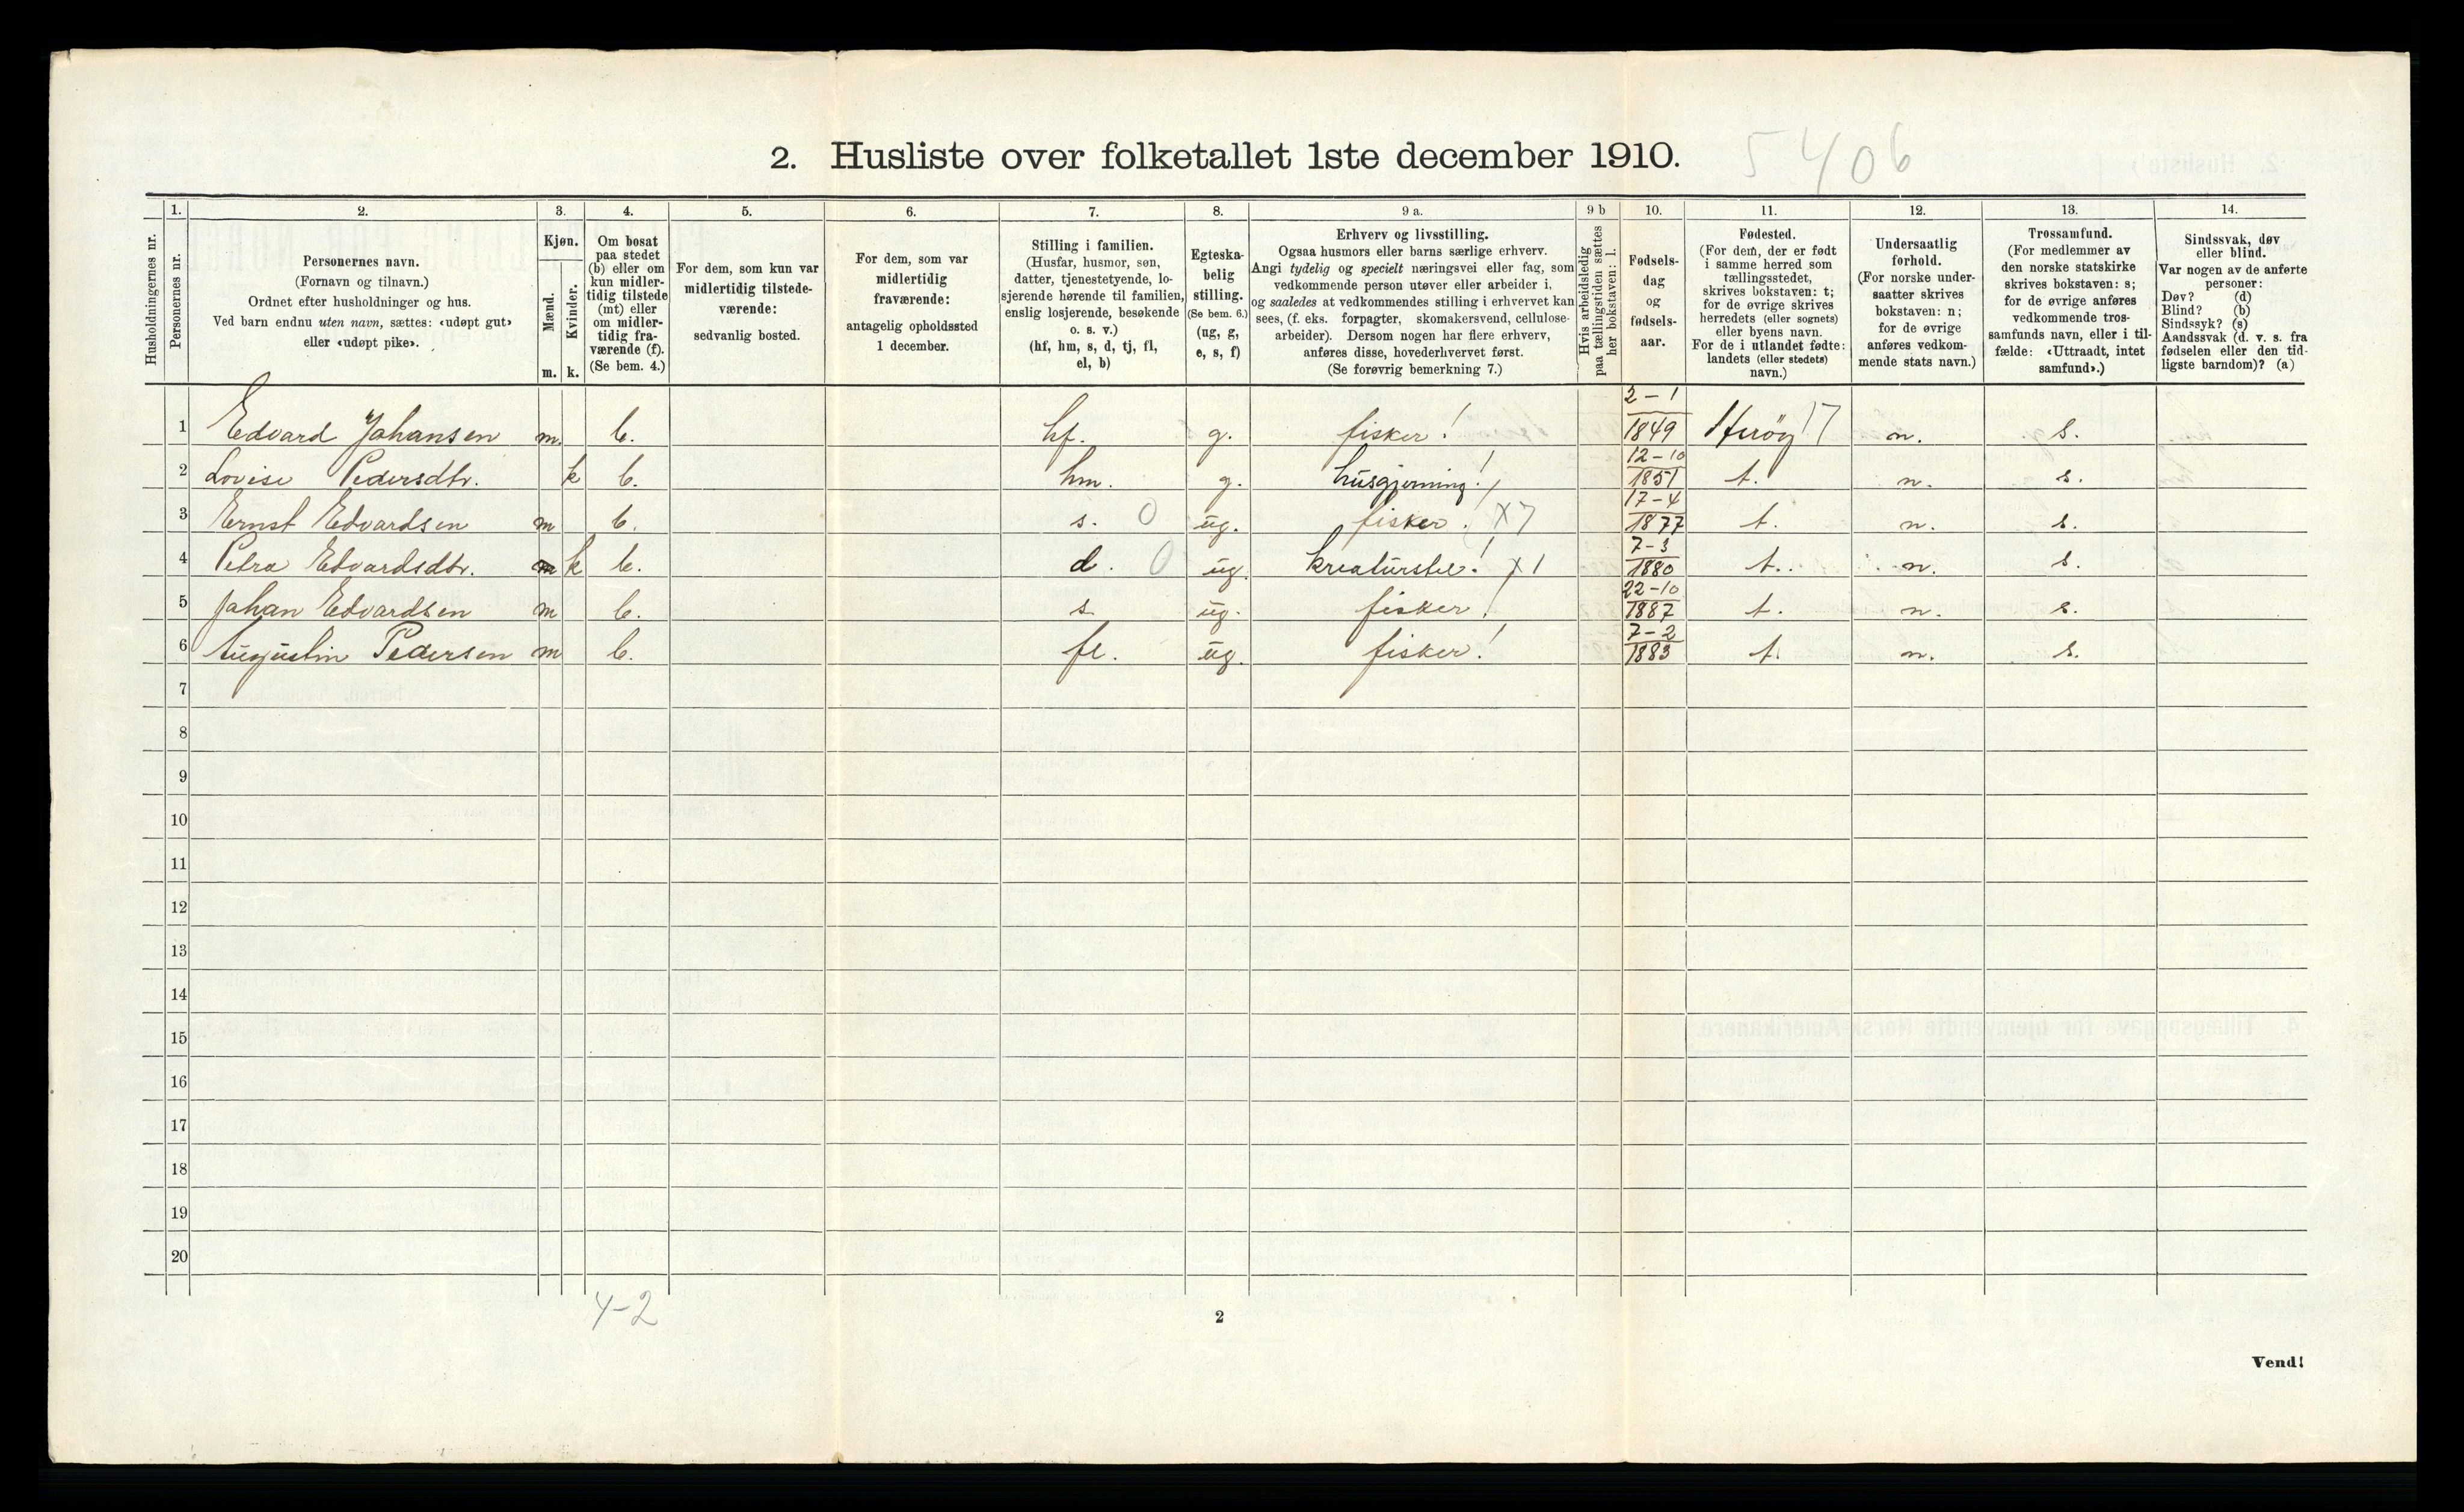 2. Husliste over folketallet 1ste december 1910.
5406
Husholdningernes nr.
1.
Personernes nr.
2.
Personernes navn.
(Fornavn og tilnavn.)
Ordnet efter husholdninger og hus.
Ved barn endnu uten navn, sættes: «udøpt gut»
eller «udøpt pike».
3.
Kjøn.
Mænd.
Kvinder.
m. k.
4.
Om bosat
paa stedet
(b) eller om
kun midler-
tidig tilstede
(mt) eller
om midler-
tidig fra-
værende (f).
(Se bem. 4.)
5.
For dem, som kun var
midlertidig tilstede-
værende:
sedvanlig bosted.
6.
For dem, som var
midlertidig
fraværende:
antagelig opholdssted
1 december.
7.
Stilling i familien.
(Husfar, husmor, søn,
datter, tjenestetyende, lo-
sjerende hørende til familien,
enslig losjerende, besøkende
o. s. v.)
(hf, hm, s, d, tj, fl,
el, b)
8.
Egteska-
belig
stilling.
(Se bem. 6.)
(ug, g,
e, s, f)
9 a.
Erhverv og livsstilling.
Ogsaa husmors eller barns særlige erhverv.
Angi tydelig og specielt næringsvei eller fag, som
vedkommende person utøver eller arbeider i,
og saaledes at vedkommendes stilling i erhvervet kan
sees, (f. eks. forpagter, skomakersvend, cellulose-
arbeider). Dersom nogen har flere erhverv,
anføres disse, hovederhvervet først.
(Se forøvrig bemerkning 7.)
9 b
Hvis arbeidsledig
paa tællingstiden sættes
her bokstaven: l.
10.
Fødsels-
dag
og
fødsels-
aar.
11.
Fødested.
(For dem, der er født
i samme herred som
tællingsstedet,
skrives bokstaven: t;
for de øvrige skrives
herredets (eller sognets)
eller byens navn.
For de i utlandet fødte:
landets (eller stedets)
navn.)
12.
Undersaatlig
forhold.
(For norske under-
saatter skrives
bokstaven: n;
for de øvrige
anføres vedkom-
mende stats navn.)
13.
Trossamfund.
(For medlemmer av
den norske statskirke
skrives bokstaven: s;
for de øvrige anføres
vedkommende tros-
samfunds navn, eller i til-
fælde: «Uttraadt, intet
samfund».)
14.
Sindssvak, døv
eller blind.
Var nogen av de anførte
personer:
Døv? (d)
Blind? (b)
Sindssyk? (s)
Aandssvak (d. v. s. fra
fødselen eller den tid-
ligste barndom)? (a)
1 Edvard Johansen m. b. hf. g. fisker! 2-1 1849 Herøy! 7 n. s.
2 Lovise Pedersdtr. k b. hm. g. husgjerning! 12-10 1851 t. n. s.
3 Ernst Edvardsen m b. s. 0 ug. fisker! X7 17-4 1877 t. n. s.
4 Petra Edvardsdtr. m k b. d. 0 ug. kreaturstel! X1 7-3 1880 t. n. s.
5 Johan Edvardsen m b. s. ug. fisker! 22-10 1887 t. n. s.
6 Augustin Pedersen m b. fl. ug. fisker! 7-2 1883 t. n. s.
7
8
9
10
11
12
13
14
15
16
17
18
19
20
4-2
2
Vend!